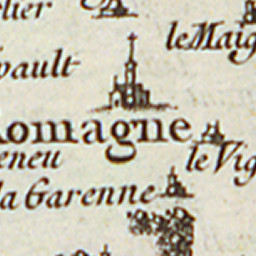 lier
leMaig
pault
Romagne
eneu
leVig
la Garenne